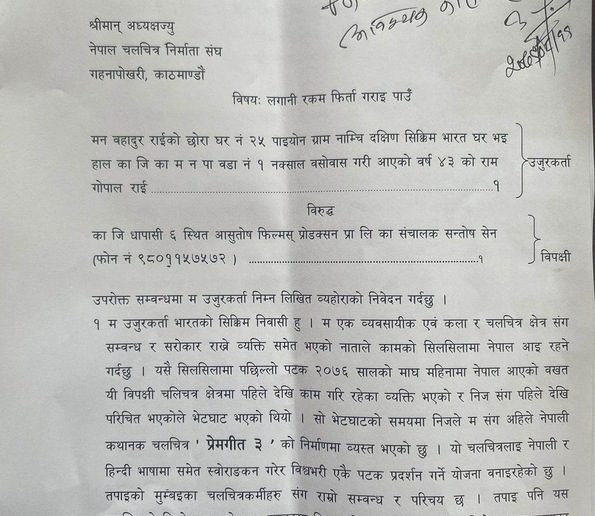 श्रीमान् अध्यक्षज्यु
नेपाल चलचित्र निर्माता संघ
गहनापोखरी, काठमाण्डौं
विषयः लगानी रकम फिर्ता गराइ पाउँ
मन बहादुर राईको छोरा घर नं २५ पाइयोन ग्राम नाम्चि दक्षिण सिक्किम भारत घर भइ
हाल का जि का म न पा वडा नं १ नक्साल वसोवास गरी आएको वर्ष ४३ को राम
गोपाल राई ............................................................ १
उजुरकर्ता
विरुद्ध
का जि धापासी ६ स्थित आसुतोष फिल्मस् प्रोडक्सन प्रा लि का संचालक सन्तोष सेन
(फोन नं ९८०११५७५७२ ) ............................................................१
विपक्षी
उपरोक्त सम्वन्धमा म उजुरकर्ता निम्न लिखित व्यहोराको निवेदन गर्दछु ।
१ म उजुरकर्ता भारतको सिक्किम निवासी हु । म एक व्यवसायीक एवं कला र चलचित्र क्षेत्र संग
सम्वन्ध र सरोकार राख्ने व्यक्ति समेत भएको नाताले कामको सिलसिलामा नेपाल आइ रहने
गर्दछु । यसै सिलसिलामा पछिल्लो पटक २०७६ सालको माघ महिनामा नेपाल आएको वखत
यी विपक्षी चलिचत्र क्षेत्रमा पहिले देखि काम गरि रहेका व्यक्ति भएको र निज संग पहिले देखि
परिचित भएकोले भेटघाट भएको थियो । सो भेटघाटको समयमा निजले म संग अहिले नेपाली
कथानक चलचित्र ' प्रेमगीत ३ ' को निर्माणमा व्यस्त भएको छु । यो चलचित्रलाइ नेपाली र
हिन्दी भाषामा समेत स्वोराडकन गरेर विश्वभरी एकै पटक प्रदर्शन गर्ने योजना वनाइरहेको छु ।
तपाइको मुम्वइका चलचित्रकर्मीहरु संग राम्रो सम्वन्ध र परिचय छ । तपाइ पनि यस